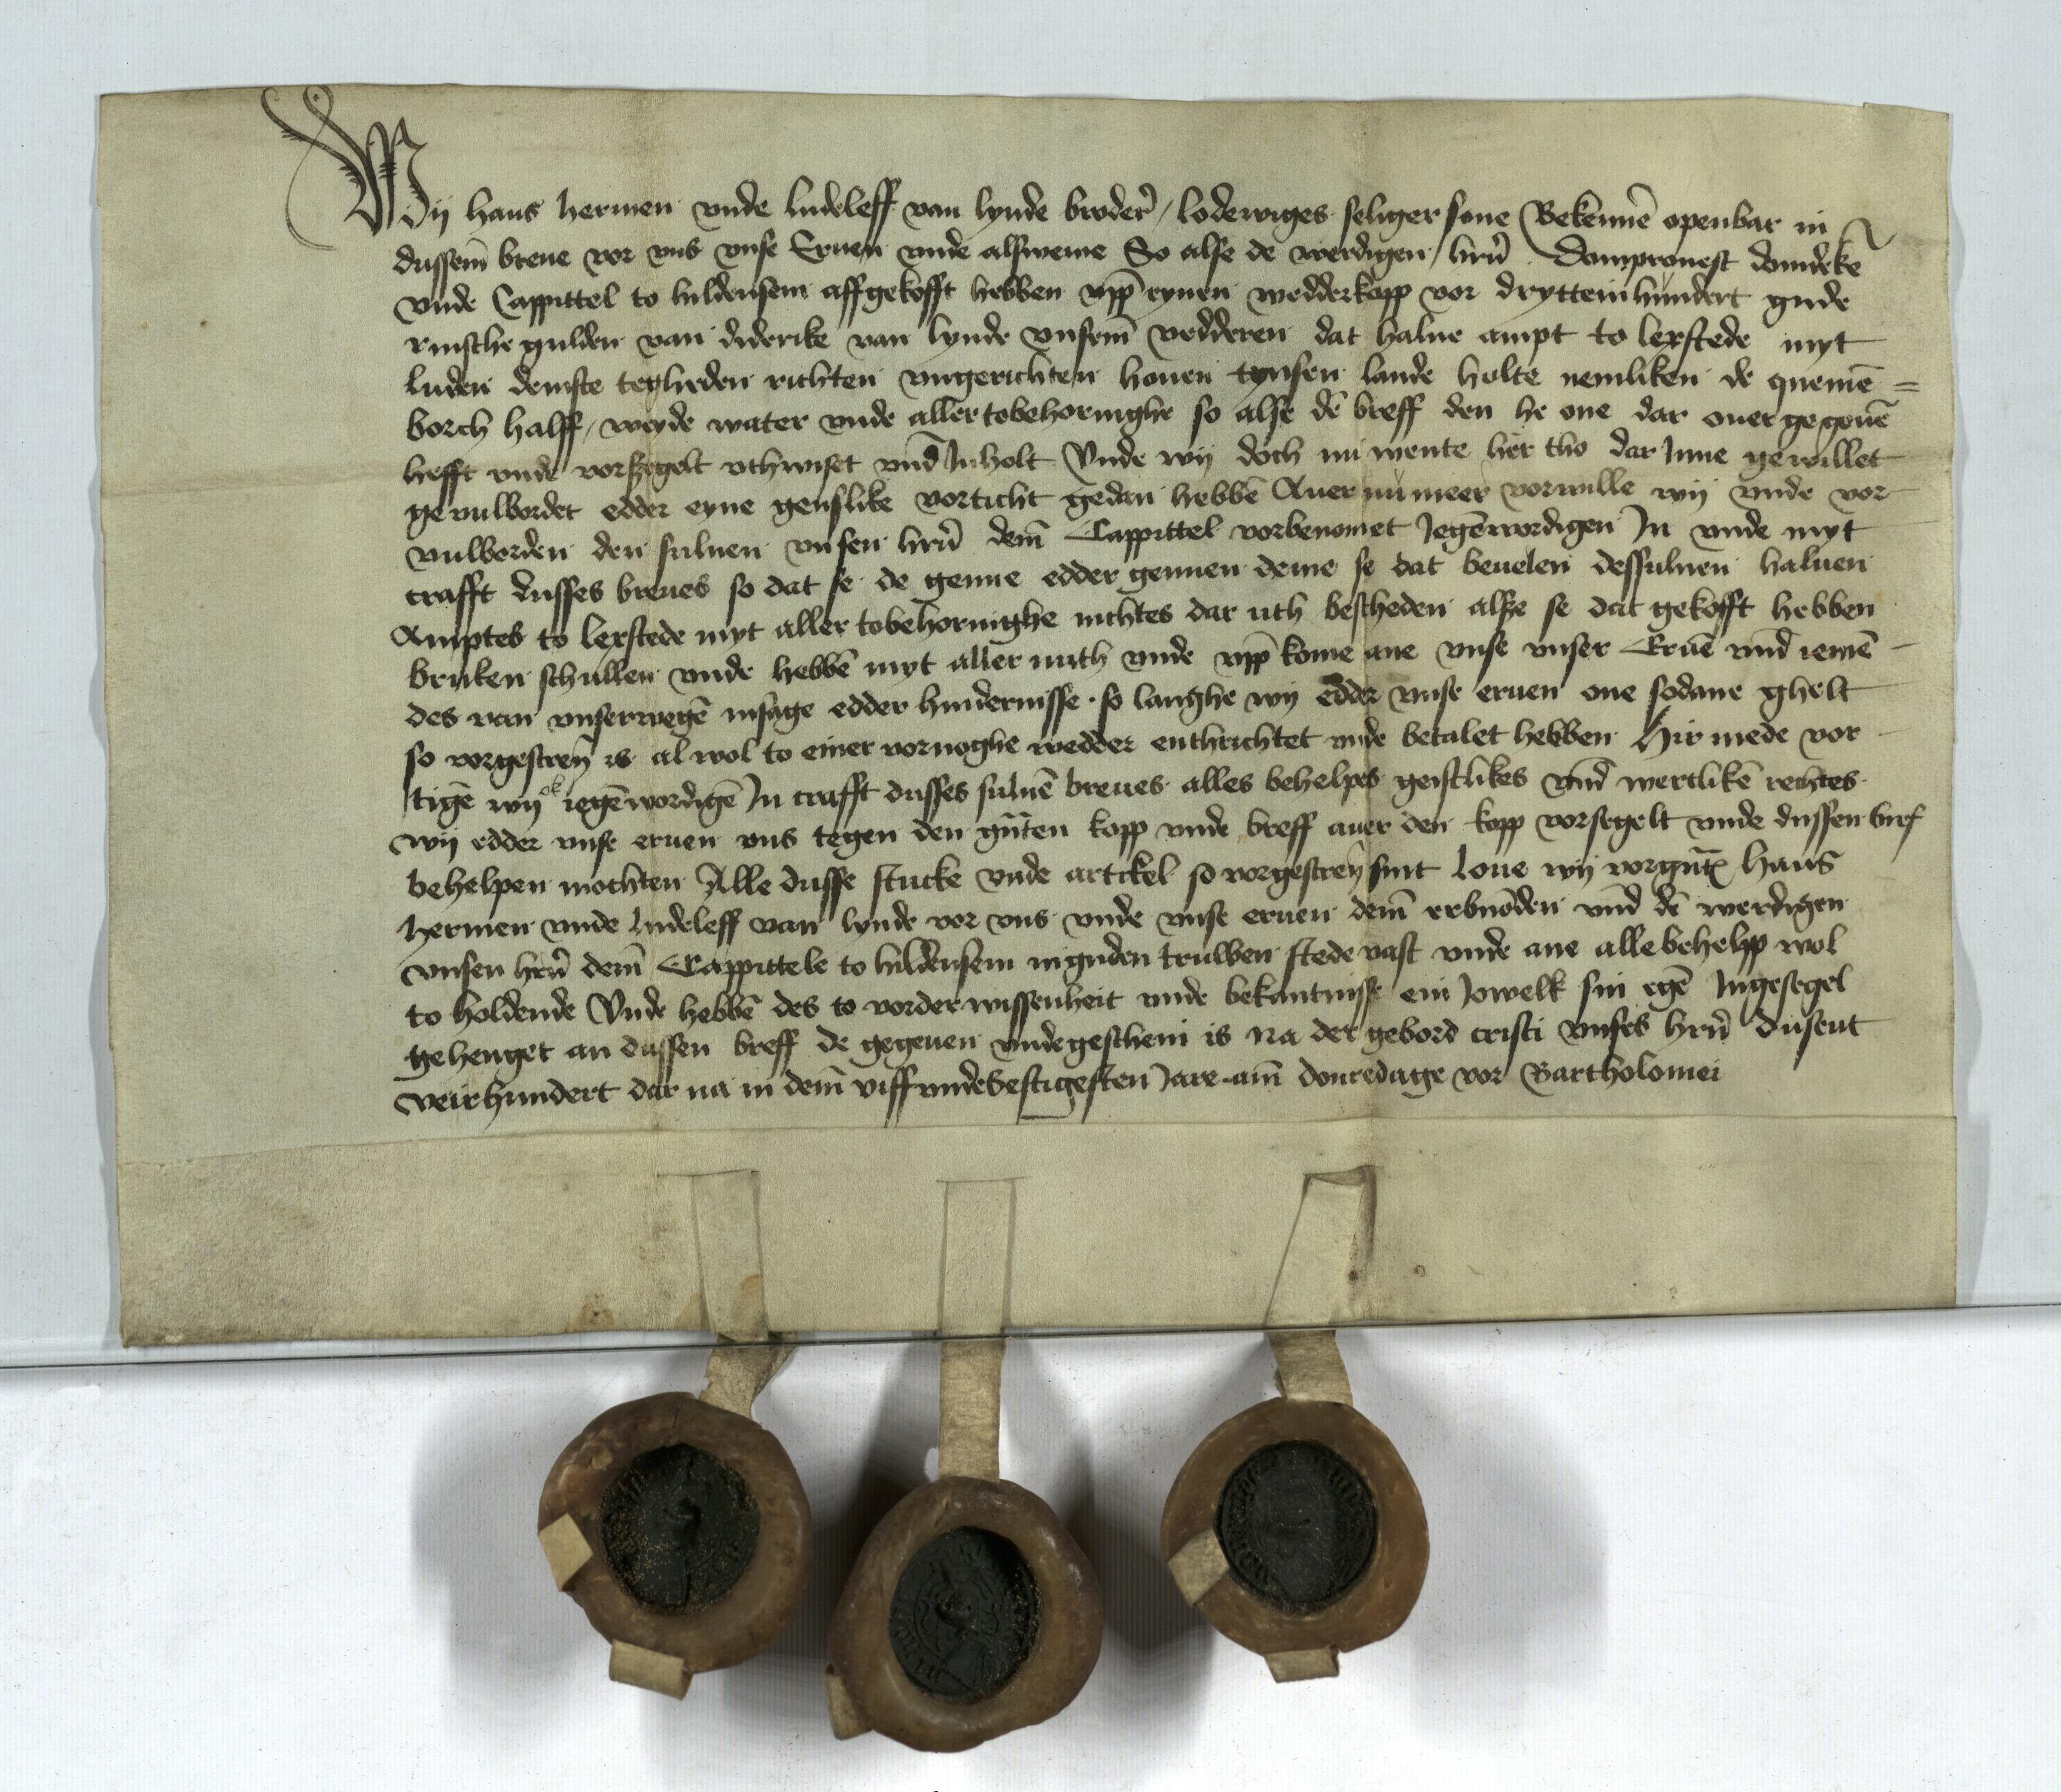 Wij hans hermen vnde ludeleff van lynde broder̃ / lodewiges seliger sone Bekennē openbar in
dussem̄ breue vor vns vnse Eruen vnde alsweme So alse de werdigen / hrn̄ Domprouest domdekē
vnde Cappittel to hildensem affgekofft hebben vpp̄ eynen wedderkopp vor dryttein hundert gude
rinsche gulden van diderike van lynde vnsem̄ vedderen dat halue ampt to lexstede myt
luden denste tegheden richten vngerichten houen tynsen lande holte nemliken de quernē =
borch halff / weyde water vnde aller tobehoringhe so alse dē breff den he one dar ouer gegeuē
hefft vnde vorszegelt vthwiset vnd̄ Inholt Vnde wij doch nu wente her tho dar Inne gewillet
gevulbordet edder eyne genslike vorticht gedan hebbē Auer nu meer vorwille wij vnde vor
vulborden den suluen vnsen hrn̄ dem̄ Cappittel vorbenomet Jegēwordigen In vnde myt
crafft dusses breues so dat se de genne edder gennen deme se dat beuelen dessuluen haluen
Amptes to lexstede myt aller tobehoringhe nichtes dar uth bescheden alsze se dat gekofft hebben
bruken schullen vnde hebbē myt aller nuth vnde vpp̄ kome ane vnse vnser Eruē vnd̄ iemē -
des van vnserwegē insage edder hindernisse · so langhe wij edder vnse eruen one sodane ghelt
so vorgescreū is al wol to einer vornoghe wedder enthrichtet vnde betalet hebben Hir mede vor -
tigē wij ok iegēwordigē In crafft dusses suluē breues alles behelpes geistlikes vnd̄ wertlikē rechtes
wij edder vnse eruen vns tegen den gn̄ten kopp vnde breff auer den kopp vorsegelt vnde dussen bref
behelpen mochten Alle dusse stucke vnde artickel so vorgescreū sint loue wij vorgn̄t hans
hermen vnde ludeleff van lynde vor vns vnde vnse eruen dem̄ erbnōden vnd̄ dē werdigen
vnsen hrn̄ dem̄ Cappittele to hildensem in guden truwen stede vast vnde ane alle behelp wol
to holdende Vnde hebbē des to vorder wissenheit vnde bekantnisse ein Jowelk sin egē Ingesegel
gehenget an dussen breff de gegeuen vnde geschein is Na der gebord cristi vnses hrn̄ dusent
veirhundert dar na in dem̄ viff vnde sestigesten Jare am̄ donredage vor Bartholomei